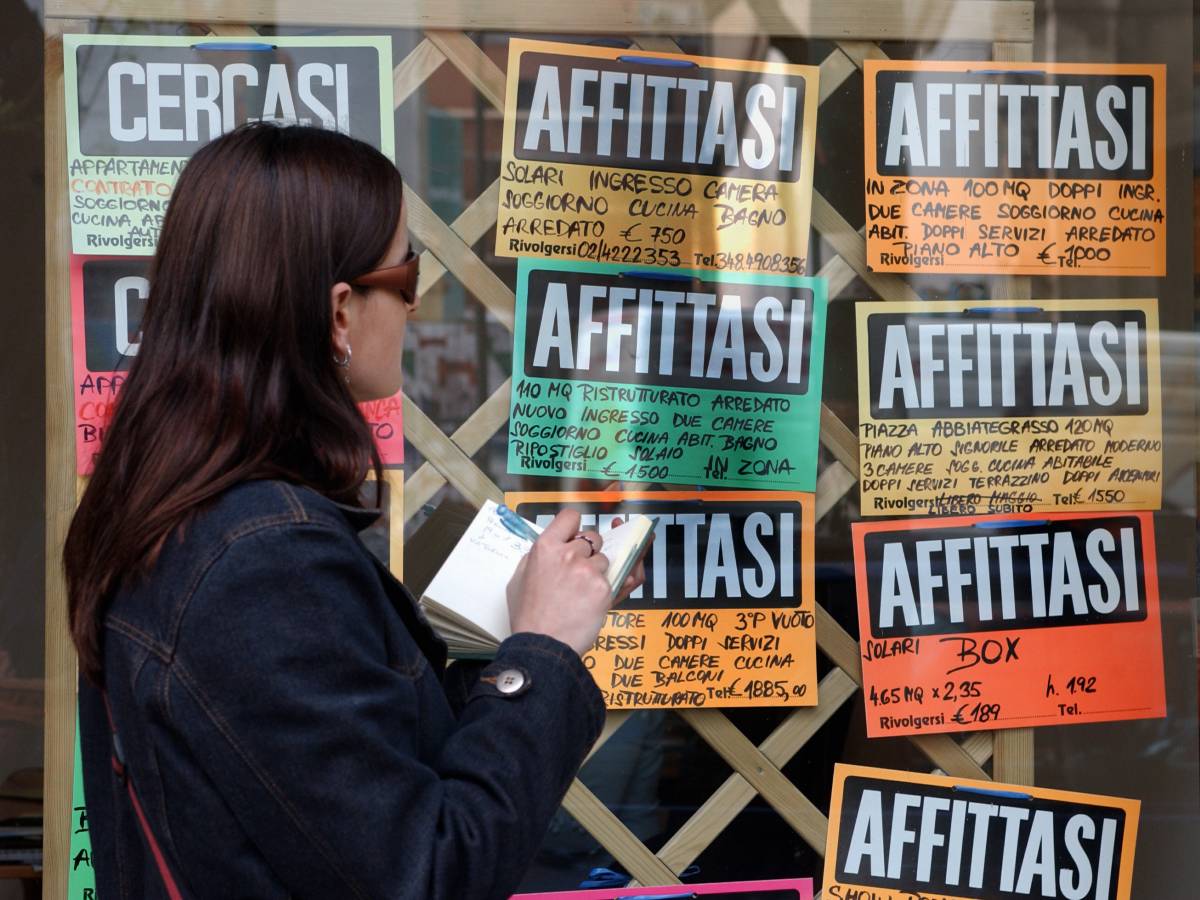 CERCASI
APPARTAMEN
CONTRATO
SOGGIORNO
CUCINA AB
AUT
Rivolgersi
C
APP
CO
BI
AFFITTASI
SOLARI INGRESSO CAMERA
SOGGIORNO CUCINA BAGNO
ARREDATO € 750
Rivolgersi 02/4222353 Tel. 348.4908356
AFFITTASI
110 MQ RISTRUTTURATO ARREDATO
NUOVO INGRESSO DUE CAMERE
SOGGIORNO CUCINA ABIT. BAGNO
RIPOSTIGLIO SOLAIO
Rivolgersi € 1500 Tel. IN ZONA
TTASI
TTORE 100 MQ 3°P VUOTO
GRESSI DOPPI SERVIZI
O DUE CAMERE CUCINA
DUE BALCONI
RISTRUTTURATO Tel. € 1885,00
AFFITTASI
IN ZONA 100 MQ DOPPI INGR.
DUE CAMERE SOGGIORNO CUCINA
ABIT. DOPPI SERVIZI ARREDATO
PIANO ALTO € 1000
Rivolgersi Tel.
AFFITTASI
PIAZZA ABBIATEGRASSO 120 MQ
PIANO ALTO SIGNORILE ARREDATO MODERNO
3 CAMERE SOGG. CUCINA ABITABILE
DOPPI SERVIZI TERRAZZINO DOPPI ASCENSORI
Rivolgersi LIBERO MAGGIO Tel. € 1550
LIBERO SUBITO
AFFITTASI
SOLARI BOX
4.65 MQ x 2,35 h. 1.92
Rivolgersi € 189 Tel.
AFFITTASI